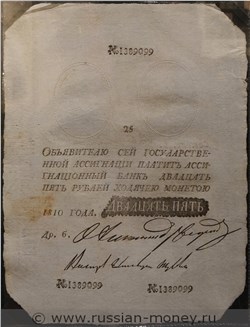 №1389099
25
ОБЪЯВИТЕЛЮ СЕЙ ГОСУДАРСТВЕ-
ННОЙ АССИГНАЦІИ ПЛАТИТЪ АССИ-
ГНАЦІОННЫЙ БАНКЪ ДВАДЦАТЬ
ПЯТЬ РУБЛЕЙ ХОДЯЧЕЮ МОНЕТОЮ
1810 ГОДА. ДВАДЦАТЬ ПЯТЬ
№1389099 №1389099
www.russian-money.ru